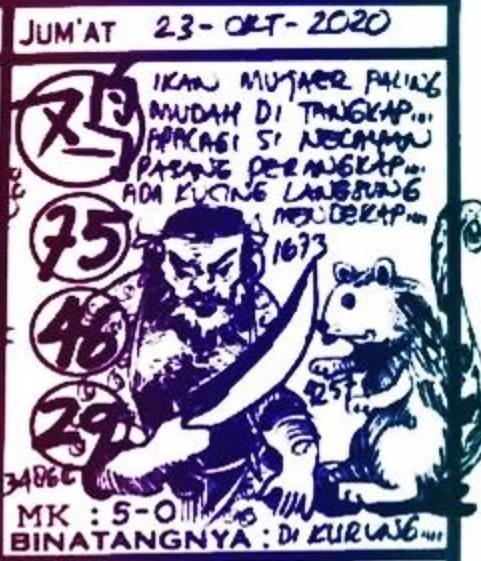 JUM'AT 23-OKT-2020
IKAN MUJAER PALING
MUDAH DI TANGKAP...
APALAGI SI NELAYAN
PASANG PERANGKAP...
ADA KUCING LANGSUNG
MENDEKAP....
75
1673
48
29
MK : 5-0
BINATANGNYA : DI KURUNG....